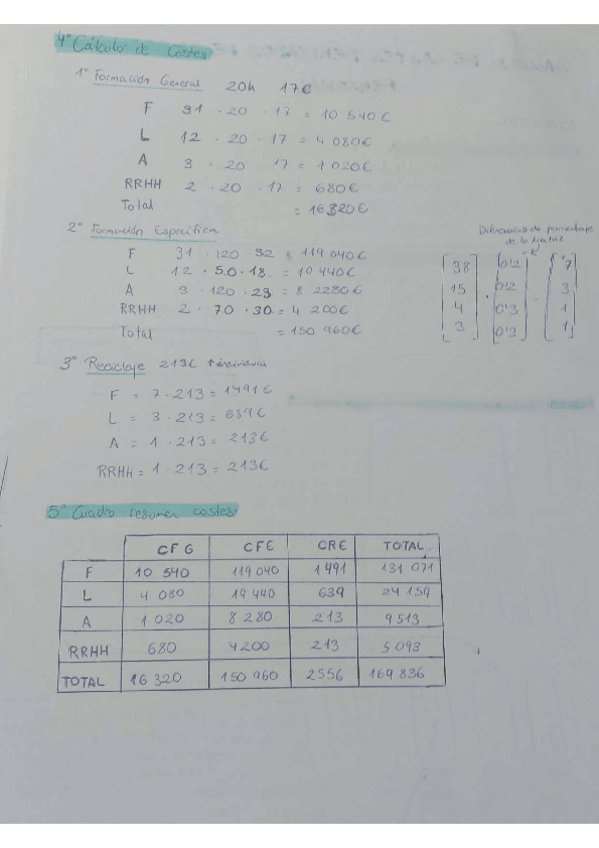 4º Cálculo de Costes
1º Formación General 20h 17€
F 31 · 20 · 17 = 10 540€
L 12 · 20 · 17 = 4 080€
A 3 · 20 17 = 1 020€
RRHH 2 · 20 · 17 = 680€
Total = 16 320€
2º Formación Específica
F 31 · 120 32 = 119 040€
L 12 · 50 · 18 = 19 440€
A 3 · 120 · 23 = 8 2280€
RRHH 2 · 70 · 30 = 4 200€
Total = 150 960€
Diferencias de porcentaje
de la matriz
38 0'2 7
15 0'2 3
4 0'3 1
3 0'3 1
3º Reciclaje 213€
F = 7 · 213 = 1491€
L = 3 · 213 = 639€
A = 1 · 213 = 213€
RRHH = 1 · 213 = 213€
5º Cuadro resumen costes
CFG CFE CRE TOTAL
F 10 540 119 040 1 491 131 071
L 4 080 19 440 639 24 159
A 1 020 8 280 213 9 513
RRHH 680 4200 213 5 093
TOTAL 16 320 150 960 2556 169 836